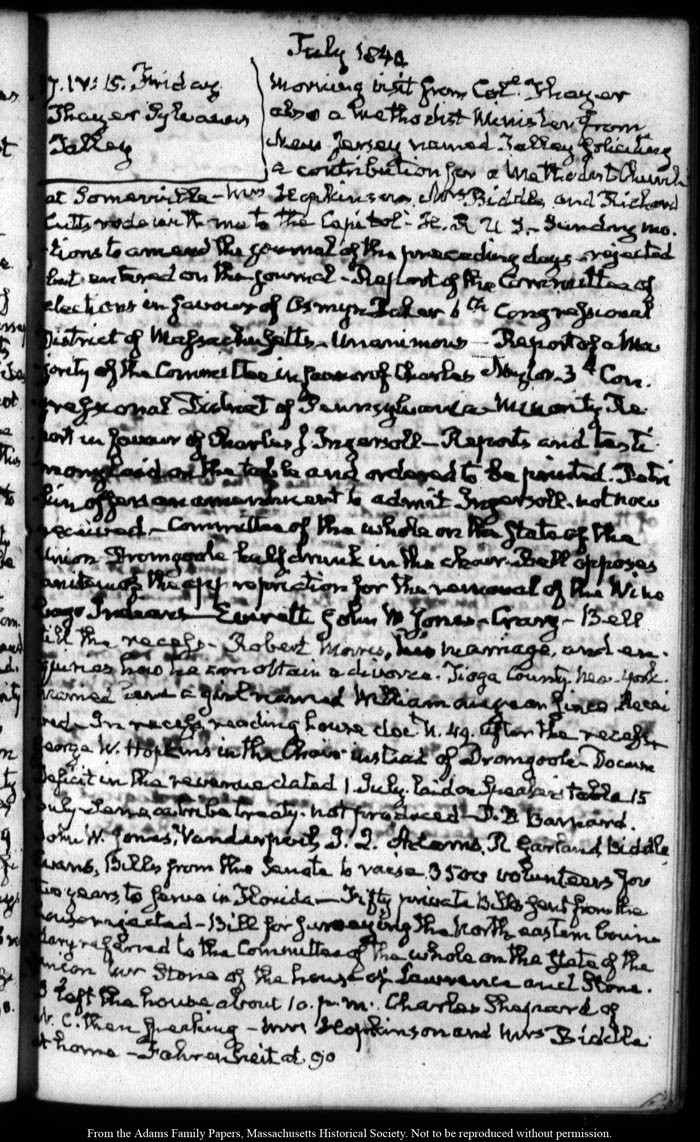 July 1840
17. IV: 15. Friday.
Thayer Sylvanus
Talley
Morning visit from Col. Thayer
also a Methodist Minister from
New Jersey named Talley soliciting
a contribution for a Methodist Church
at Somerville - Mrs Hopkinson, Mrs Biddle, and Richard
Cutts rode with me to the Capitol - H. R. U. S. - Sundry mo-
-tions to amend the journal of the preceding days - rejected
but entered on the journal - Report of the Committee of
elections in favour of Osmyn Baker 6th Congressional
District of Massachusetts - Unanimous - Report of a Ma-
jority of the Committee in favour of Charles Naylor. 3d Con-
gressional District of Pennsylvania - Minority Re-
port in favour of Charles J. Ingersoll - Reports and testi-
mony laid on the table and ordered to be printed. Petri-
kin offers an amendment to admit Ingersoll. not now
received - Committee of the whole on the State of the
Union Dromgoole half drunk in the chair - Bell opposes
an item of the appropriation for the removal of the Winne-
bago Indians - Everett, John W Jones - Crary - Bell
till the recess - Robert Morris, his marriage, and en-
quiries how he can obtain a divorce. Tioga County New-York.
married a girl named
In recess, reading house doc. N. 49. After the recess
George W. Hopkins in the Chair instead of Dromgoole - Docum
Deficit in the revenue dated 1 July. laid on Speaker's table 15
July - Seneca tribe treaty - not produced - D. D. Barnard.
John W. Jones, Vanderpoel, J. Q. Adams, R Garland Biddle
Evans, Bills from the Senate to raise volunteers for
two years, to serve in Florida - Fifty private Bills sent from the
house rejected - Bill for surveying the North eastern boun-
dary referred to the Committee of the whole on the State of the
Union Mr Stone of the house of Lawrence and Stone.
I left the house about 10. p.m. Charles Shepard of
N. C. then speaking - Mrs Hopkinson and Mrs Biddle
at home - Fahrenheit at 90
From the Adams Family Papers, Massachusetts Historical Society. Not to be reproduced without permission.